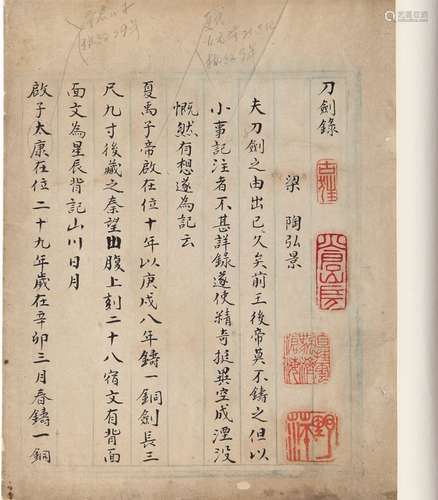 刀劍錄
梁 陶弘景
夫刀劍之由出已久矣前王後帝莫不鑄之但以
小事記注者不甚詳錄遂使精奇挺異空成湮没
慨然有想遂為記云
夏禹子帝啟在位十年以庚戌八年鑄一銅劍長三
尺九寸後藏之秦望山腹上刻二十八宿文有背面
面文為星辰背記山川日月
啟子太康在位二十九年歲在辛卯三月春鑄一銅